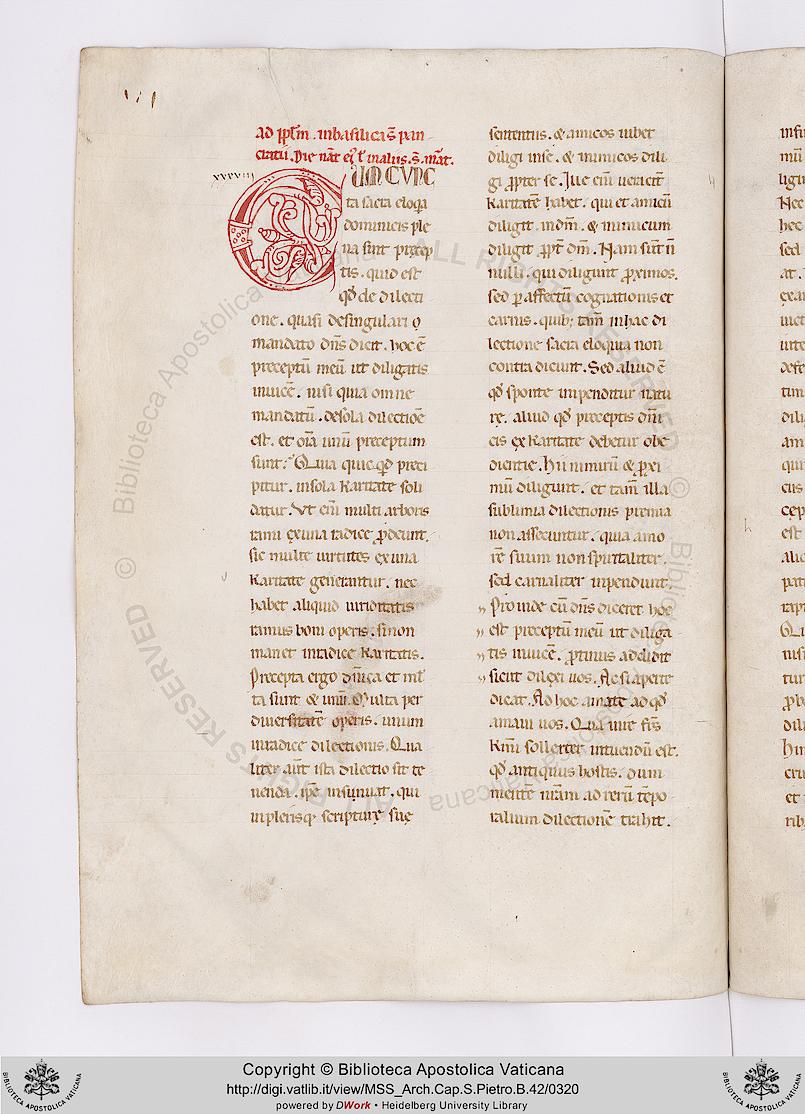 ad pplm . inbasilica S pan
cratii . Die nat ei t malus . S . mat .
xxxviii
CUM CUNC
ta sacra eloqa
dominicis ple
na sint precep
tis . quid est
qd de dilecti
one . quasi desingulari
mandato dns dicit . hoc ē
preceptū meū ut diligatis
invicē . nisi quia omne
mandatū . desola dilectiōe
est . et oīa unū preceptum
sunt . Quia quicqd preci
pitur . insola karitate soli
datur . Ut enī multi arboris
rami exuna radice pdeunt .
sic multe virtutes exuna
karitate generantur . nec
habet aliquid viriditatis
ramus boni operis . sinon
manet inradice karitatis .
Precepta ergo dnica et ml
ta sunt & unū . Multa per
diversitatē operis . unum
inradice dilectionis . Qua
liter aut ista dilectio sit te
nenda . ipe insinuat . qui
inplerisq scripture sue
sententiis . & amicos iubet
diligi inse . & inimicos dili
gi propter se . Ille enī veracit
karitatē habet . qui et amicū
diligit indō . & inimicum
diligit ppt dm . Nam sūt n
nulli . qui diligunt proximos .
sed p affectū cognationis et
carnis . quib; tam inhac di
lectione sacra eloquia non
contradicunt . Sed aliud ē
qd sponte inpenditur natu
re . aliud qd preceptis dni
cis ex karitate debetur obe
dientie . Hii nimirū & proxi
mū diligunt . et tam illa
sublimia dilectionis premia
non assecuntur . quia amo
rē suum non spiritaliter .
sed carnaliter inpendunt .
Proinde cū dns diceret hoc
est preceptū meū ut diliga
tis invicē . protinus addidit
sicut dilexi vos . Ac si aperte
dicat . Ad hoc amate ad qd
amavi vos . Qua in re frs
kmi sollerter intuendū est .
qd antiquus hostis . dum
mentē nram ad rerū tēpo
ralium dilectionē trahit .
© Biblioteca Apostolica Vaticana ALL RIGHTS RESERVED
Copyright © Biblioteca Apostolica Vaticana
http://digi.vatlib.it/view/MSS_Arch.Cap.S.Pietro.B.42/0320
powered by DWork • Heidelberg University Library
BIBLIOTECA APOSTOLICA VATICANA
BIBLIOTECA APOSTOLICA VATICANA